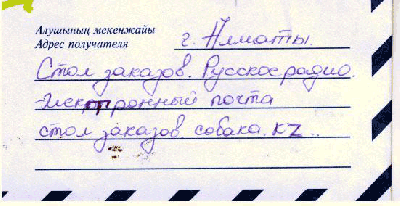 Алушының мекенжайы
Адрес получателя г. Алматы.
Стол заказов. Русское радио.
почта
стол заказов. собака. KZ..